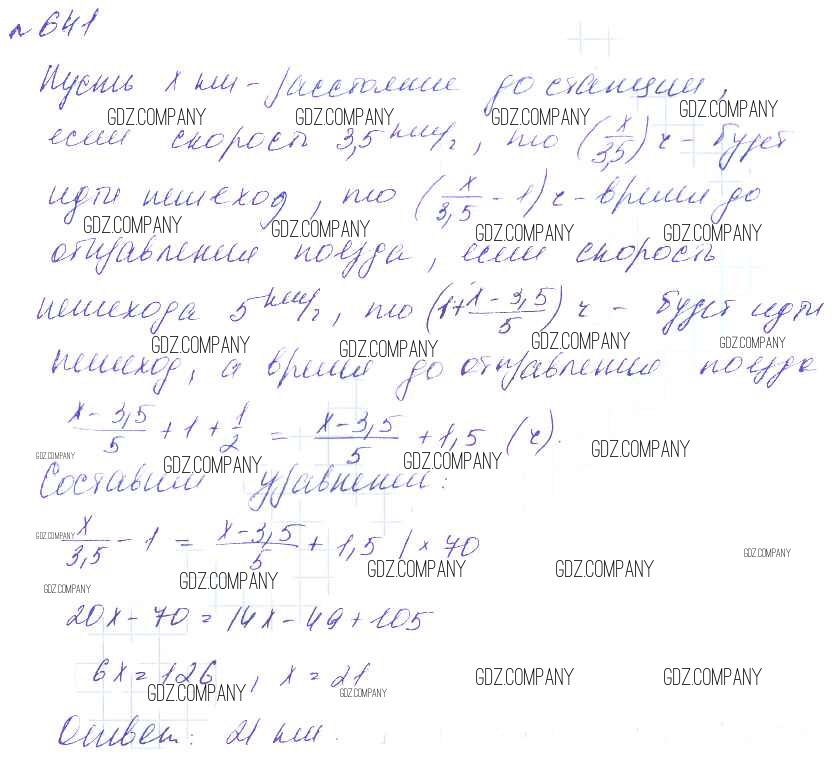 № 641
Пусть x км - расстояние до станции,
если скорость 3,5 км/ч, то (x/3,5) ч - будет
идти пешеход, то (x/3,5 - 1) ч - время до
отправления поезда, если скорость
пешехода 5 км/ч, то (1+(x-3,5)/5) ч - будет идти
пешеход, а время до отправления поезда
(x-3,5)/5 + 1 + 1/2 = (x-3,5)/5 + 1,5 (ч).
Составим уравнение:
x/3,5 - 1 = (x-3,5)/5 + 1,5 | × 70
20x - 70 = 14x - 49 + 105
6x = 126, x = 21
Ответ: 21 км.
GDZ.COMPANY GDZ.COMPANY GDZ.COMPANY GDZ.COMPANY
GDZ.COMPANY GDZ.COMPANY GDZ.COMPANY GDZ.COMPANY
GDZ.COMPANY GDZ.COMPANY GDZ.COMPANY GDZ.COMPANY
GDZ.COMPANY GDZ.COMPANY GDZ.COMPANY GDZ.COMPANY
GDZ.COMPANY GDZ.COMPANY
GDZ.COMPANY GDZ.COMPANY GDZ.COMPANY GDZ.COMPANY
GDZ.COMPANY GDZ.COMPANY GDZ.COMPANY GDZ.COMPANY